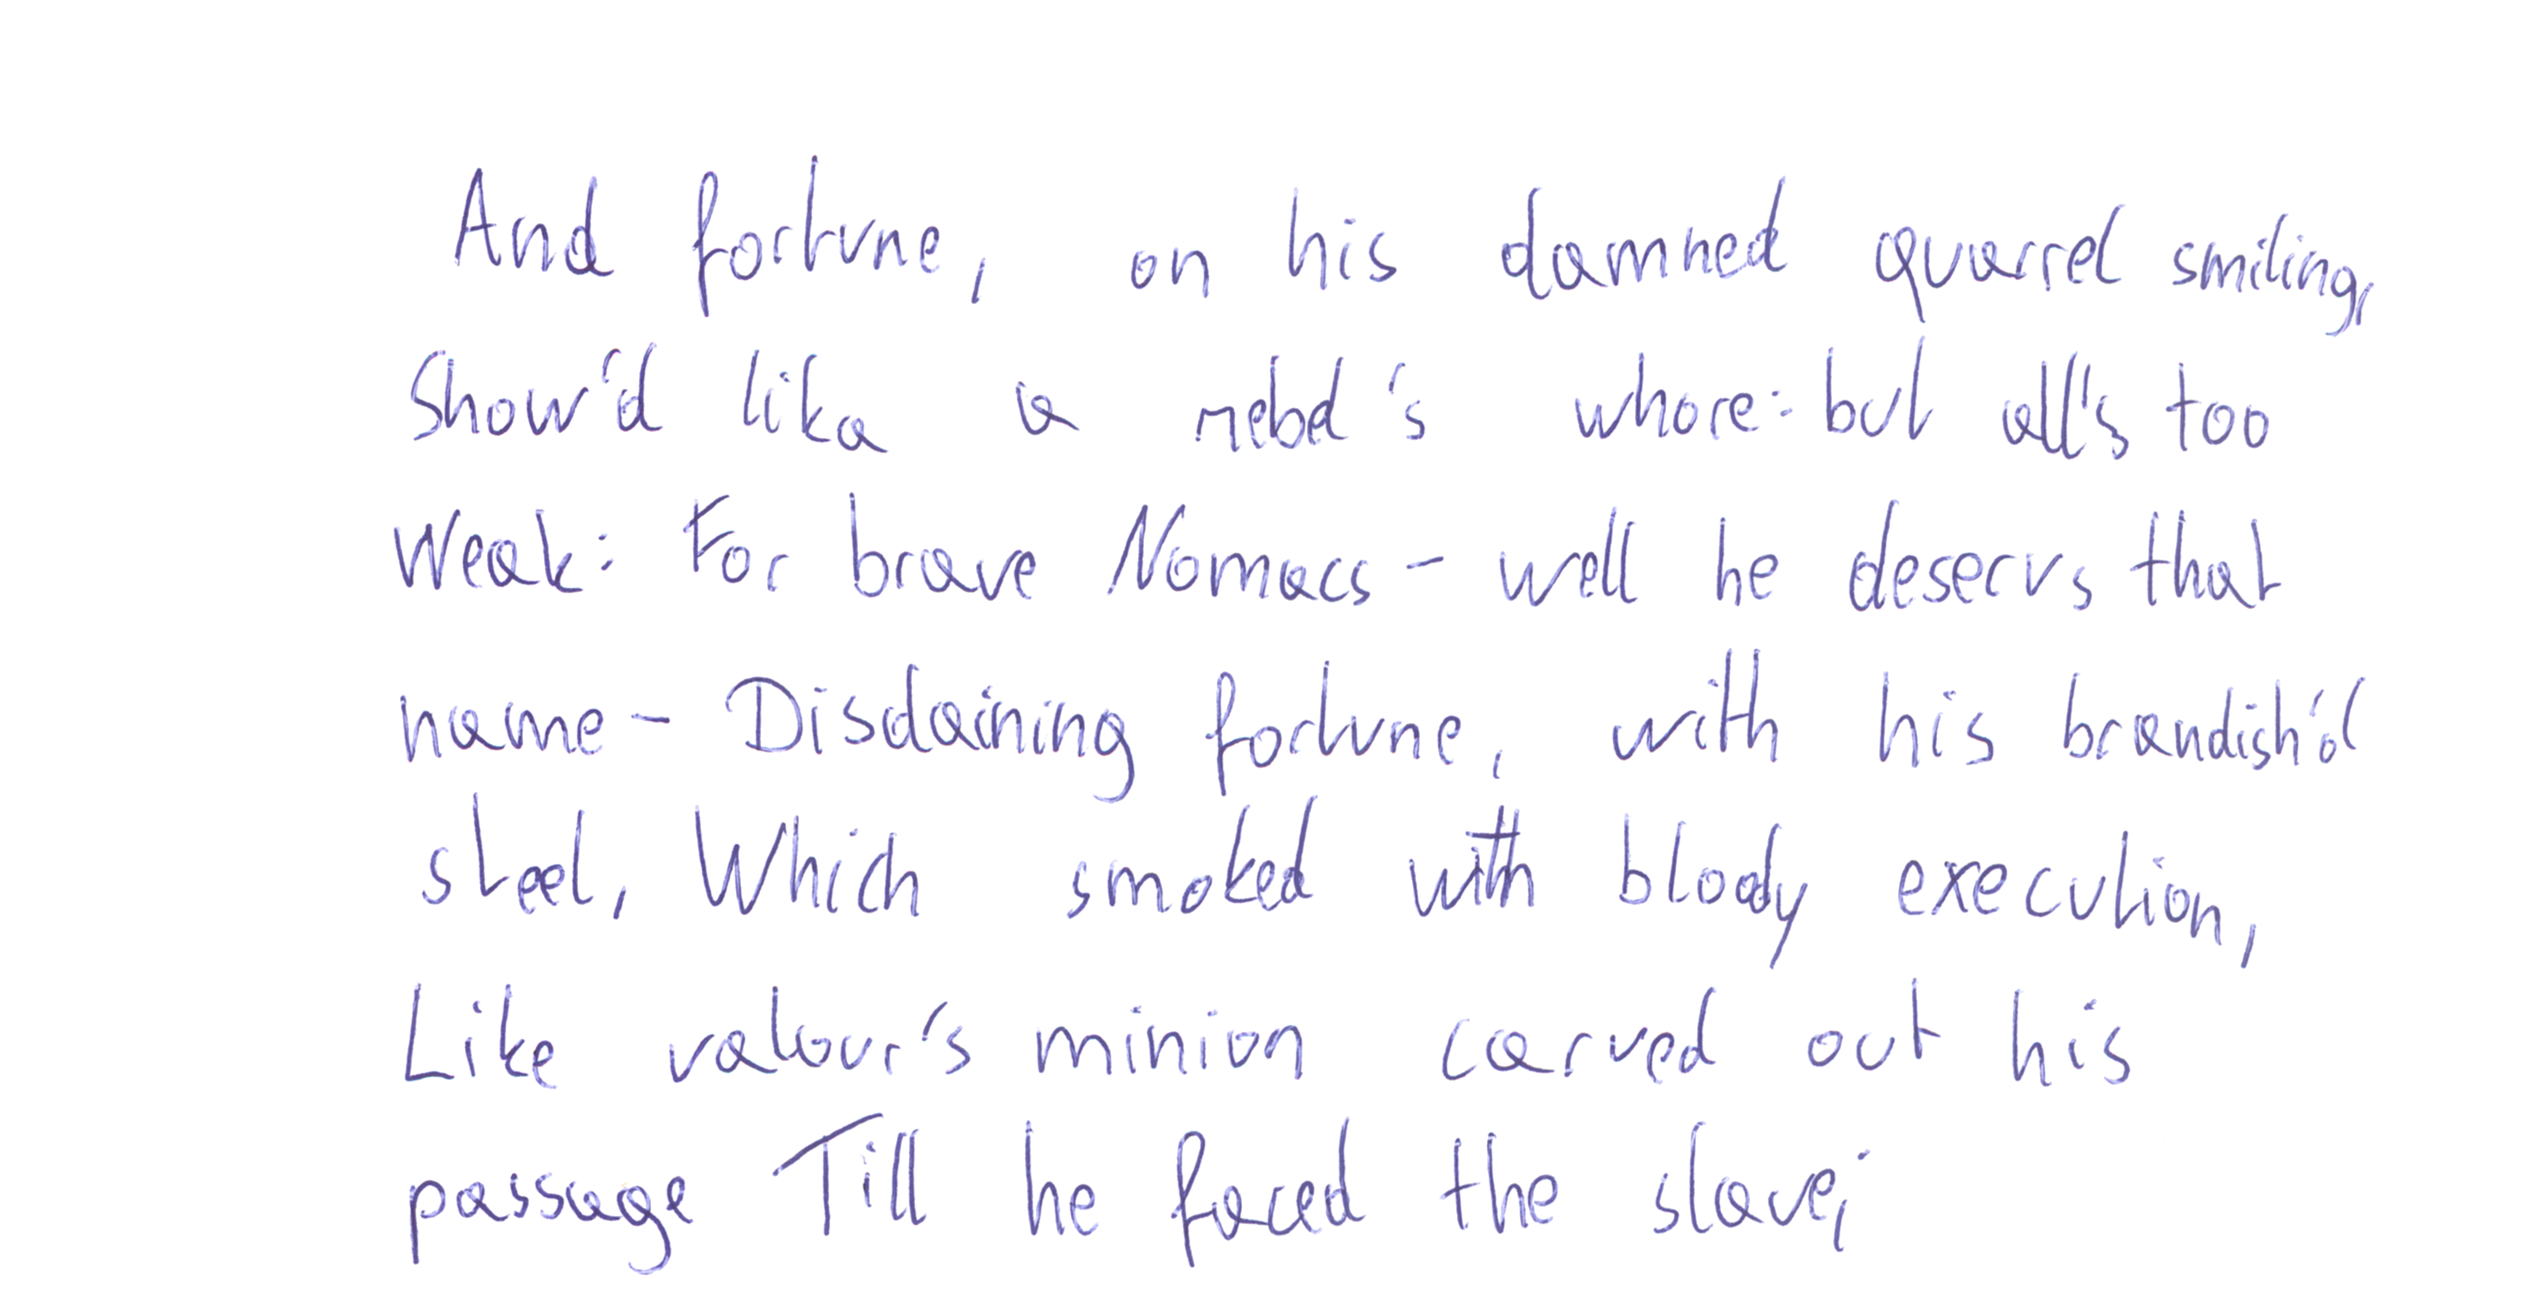 And fortune, on his damned quarrel smiling,
Show'd lika a rebel's whore: but all's too
Weak: For brave Nomacs - well he deservs that
name - Disdaining fortune, with his brandish'd
steel, Which smoked with bloody execution,
Like valour's minion carved out his
passage Till he faced the slave;